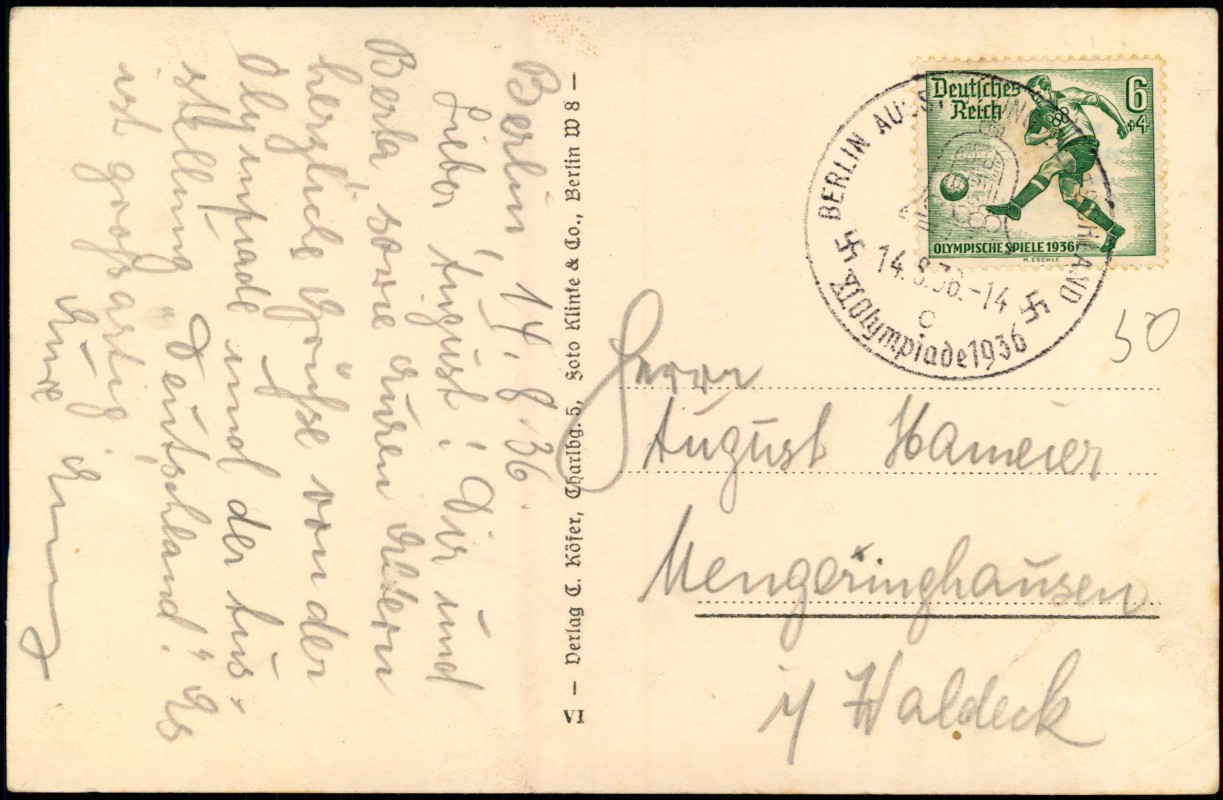 Berlin, 14.8.36.
Lieber August! Dir und
Berta, sowie euren Eltern
herzliche Grüße von der
Olympiade und der Aus-
stellung „Deutschland!“ Es
ist großartig!
Eure
VI — Verlag C. Köfer, Charlbg. 5, Foto Klinke & Co., Berlin W 8 —
Deutsches
Reich
6
+4
OLYMPISCHE SPIELE 1936
M. ESCHLE
BERLIN
14.8.36.-14
c
XI.Olympiade1936
50
Herrn
August Hameier
Mengeringhausen
i/ Waldeck